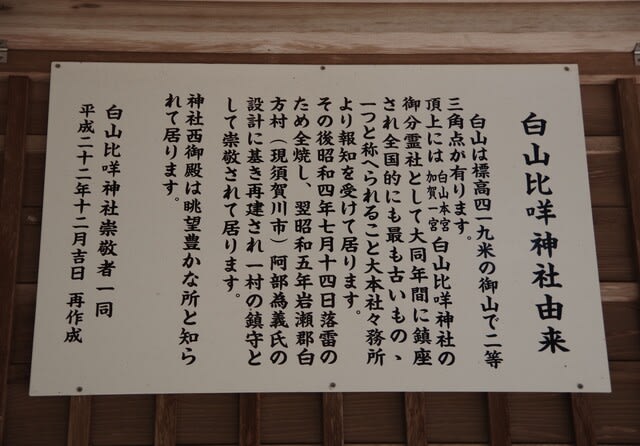 白山比咩神社由来
白山は標高四一九米の御山で二等
三角点が有ります。
頂上には白山本宮加賀一宮白山比咩神社の
御分霊社として大同年間に鎮座
され全国的にも最も古いもの、
一つと称へられること大本社々務所
より報知を受けて居ります。
その後昭和四年七月十四日落雷の
ため全焼し、翌昭和五年岩瀬郡白
方村（現須賀川市）阿部為義氏の
設計に基き再建され一村の鎮守と
して崇敬されて居ります。
神社西御殿は眺望豊かな所と知ら
れて居ります。
白山比咩神社崇敬者一同
平成二十二年十二月吉日 再作成